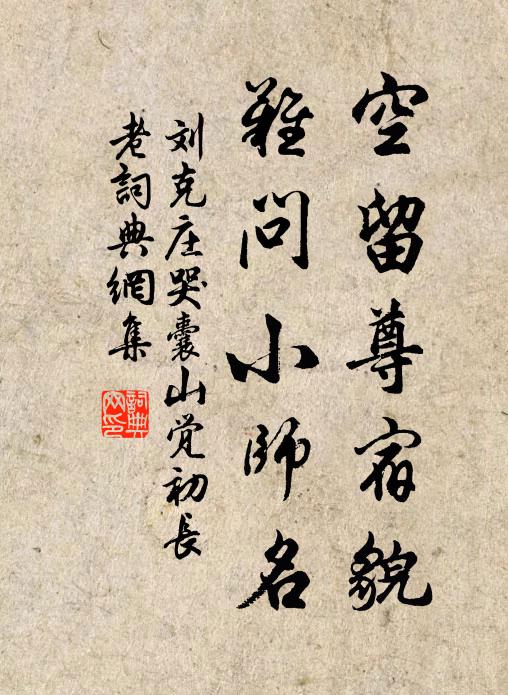 空留尊宿貌
难問小師名
刘克庄哭囊山觉初長
老詞典網集
詞典
网印